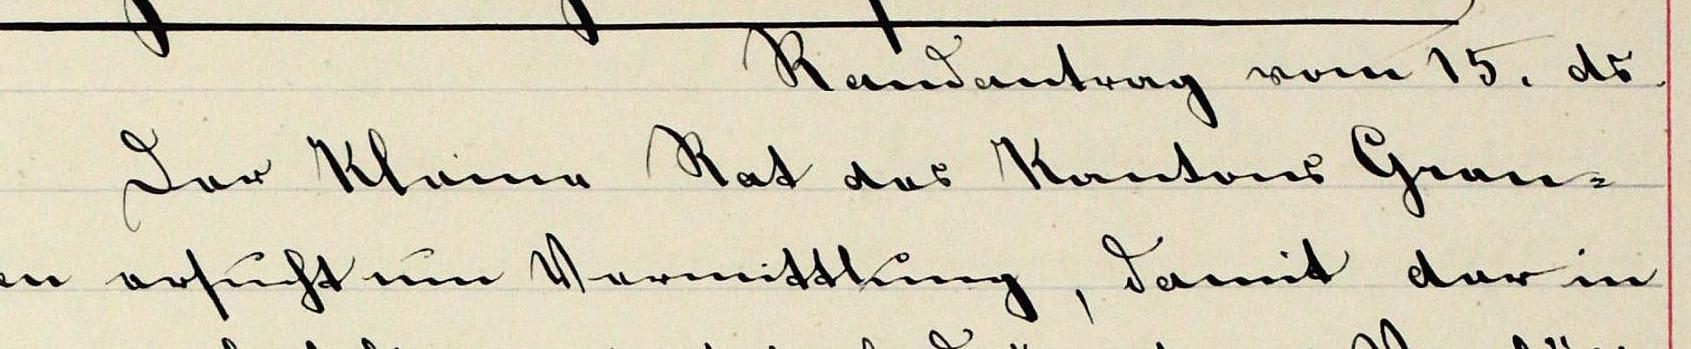 Randantrag vom 15. ds.
Der Kleine Rat des Kantons Grau=
en ersucht um Vermittlung, damit der in